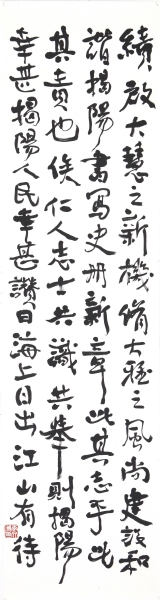 續啟大慧之新機脩大雅之风尚建設和
諧揭陽書寫史册新章此其志乎此
其責也俟仁人志士共識共舉則揭陽
幸甚揭陽人民幸甚讚曰海上日出江山有待